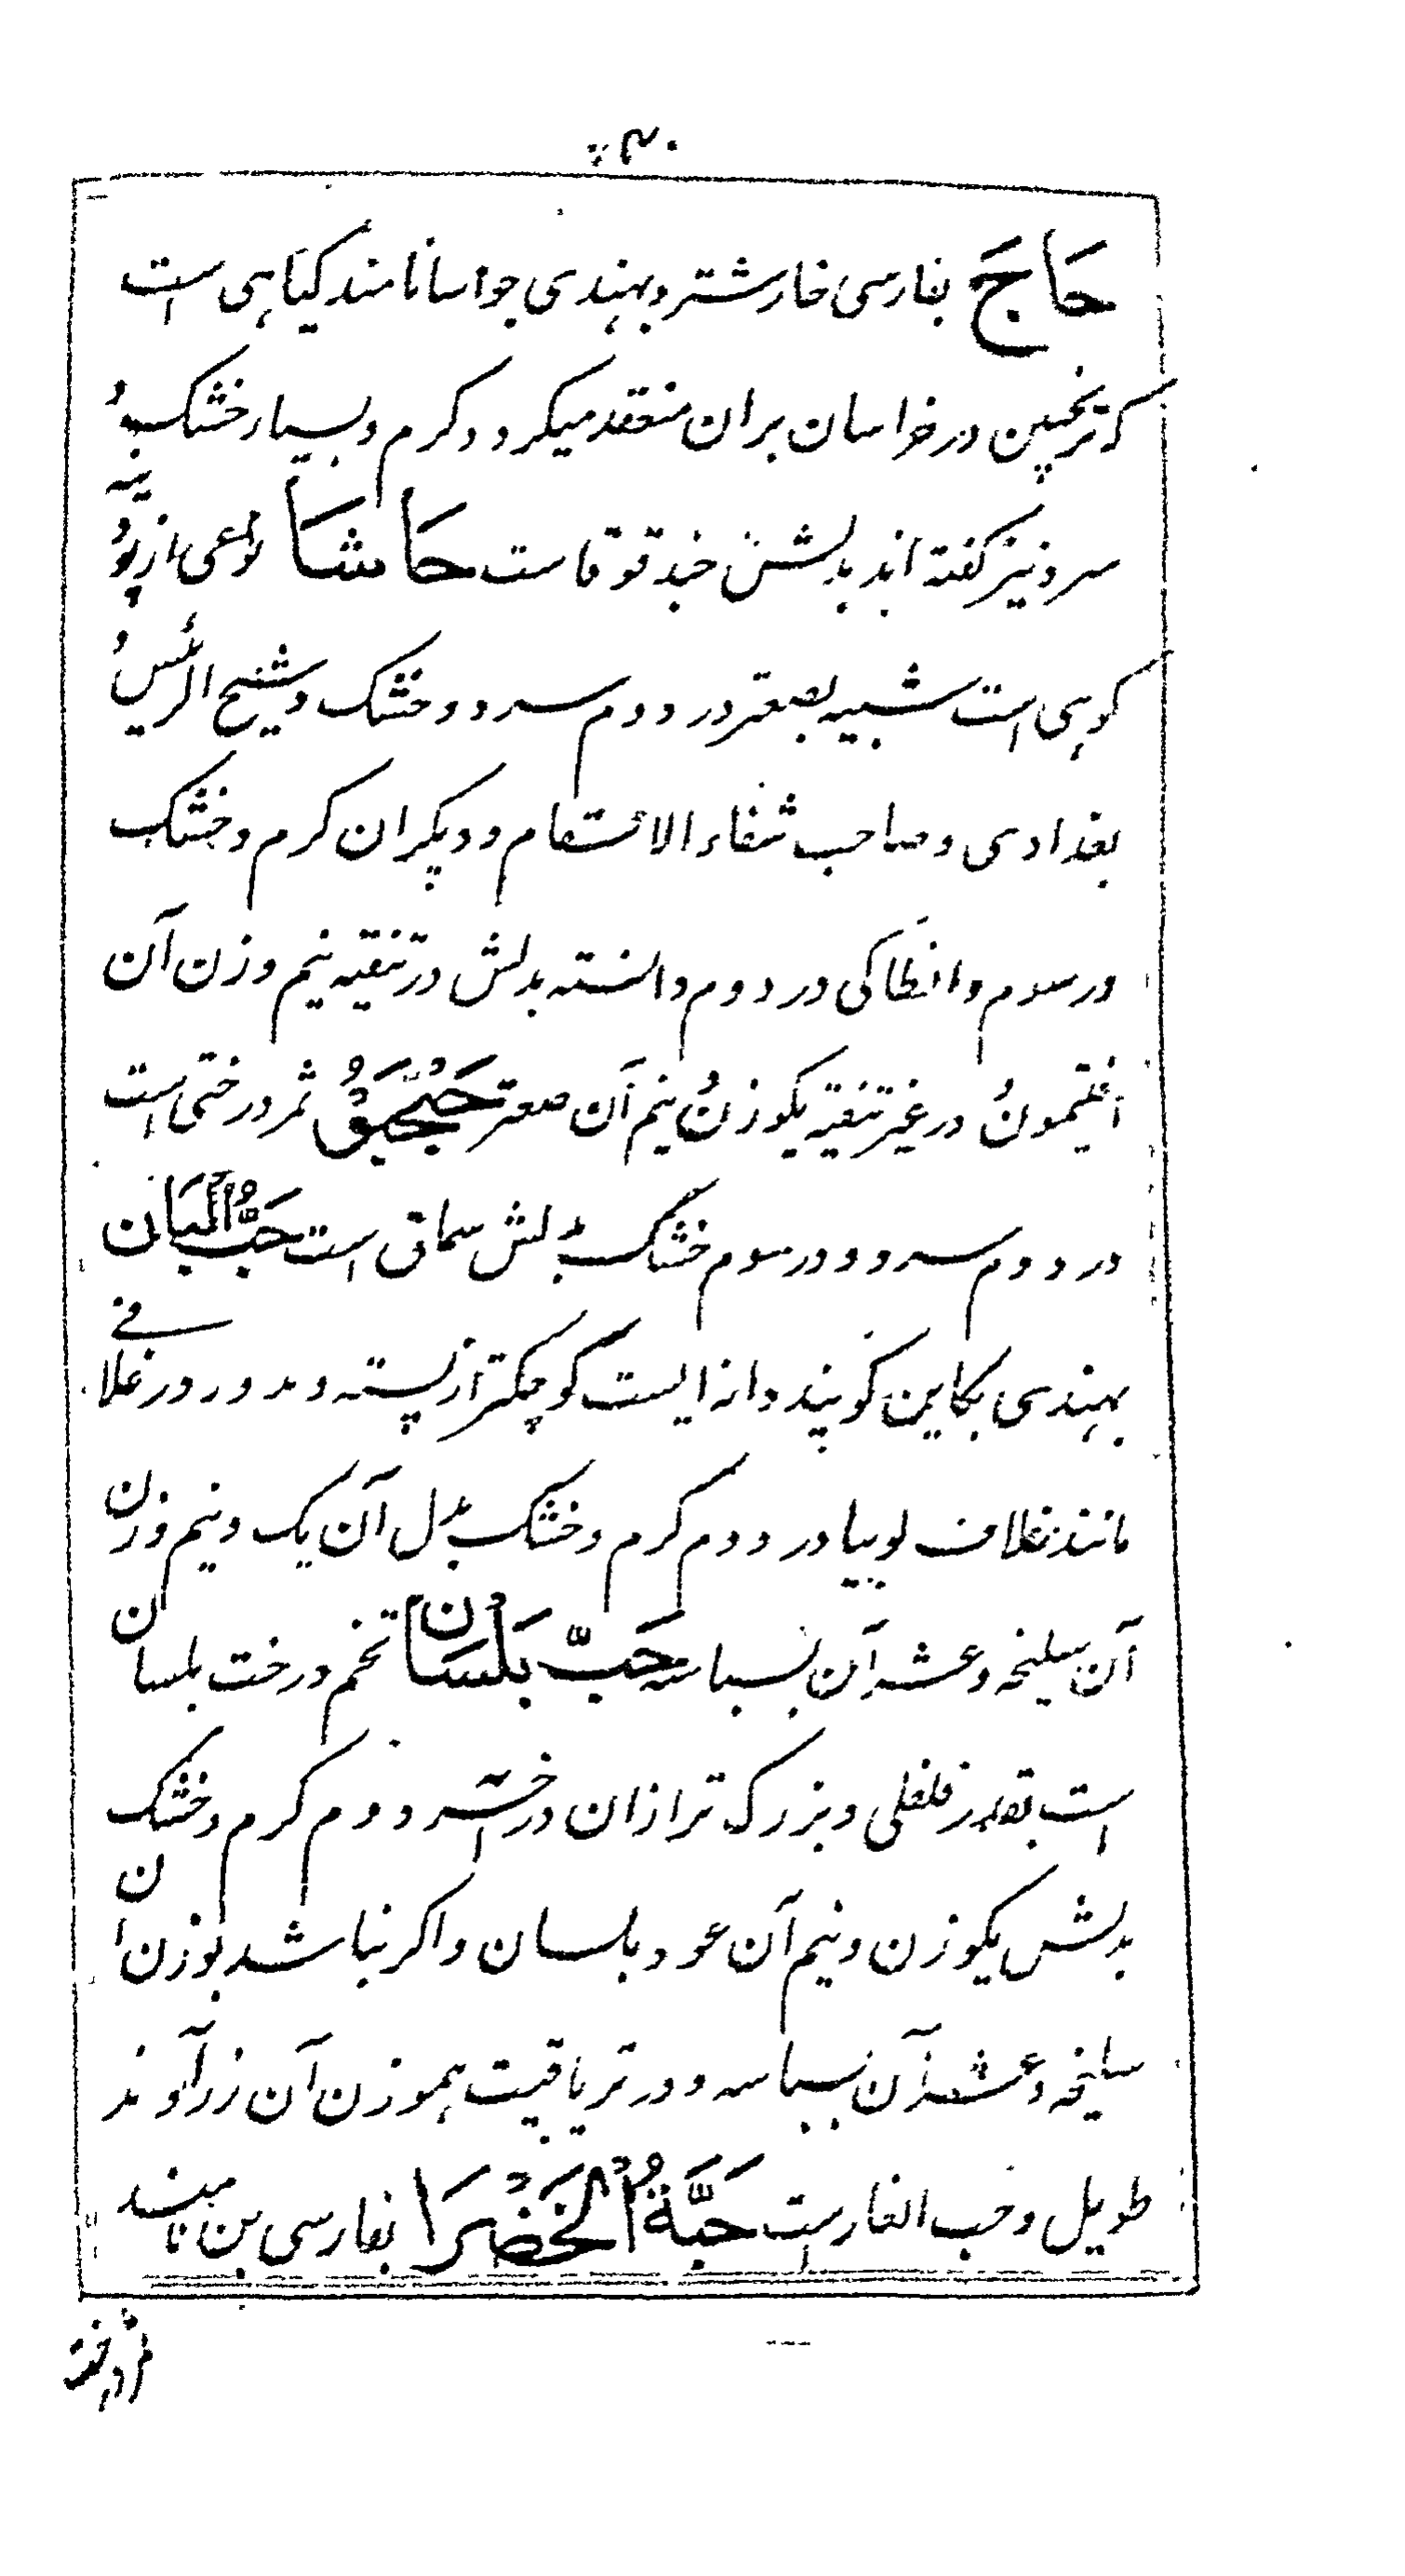 ۳۰
حَاجَ بفارسی خارشتر و بهندی جواسا نامند کیاهی است
که ترنجبین در خراسان بران منعقد میکردد کرم و بسیار خشک و
سرد نیز کفته اند بدلش حندقوقاست حَاشَا نوعی از پودینه
کوهی است شبیه بصعتر در دوم سرد و خشک و شیخ الرئیس و
بغدادی و صاحب شفاء الاسقام و دیکران کرم و خشک
در سوم و انطاکی در دوم دانسته بدلش در تنقیه نیم وزن آن
افتیمون و در غیر تنقیه یکوزن و نیم آن صعتر ثمر درختی است
در دوم سرد و در سوم خشک بدلش سماق است حَبُّ الْبَان
بهندی بکاین کویند دانه ایست کوچکتر از پسته و مدور در غلافی
مانند غلاف لوبیا در دوم کرم و خشک بدل آن یک و نیم وزن
آن سلیخه و عشر آن بسباسه حَبّ بَلَسَان تخم درخت بلسان
است بقدر فلفلی و بزرک تر ازان در آخر دوم کرم و خشک
بدلش یکوزن و نیم آن عود بلسان و اکر نباشد بوزن ان
سلیخه و عشر آن بسباسه و در تریاقیت هموزن آن زرآوند
طویل و حب الغارست حَبَّةُ الْخَضْرَا بفارسی بن نامند
ثمر درخت